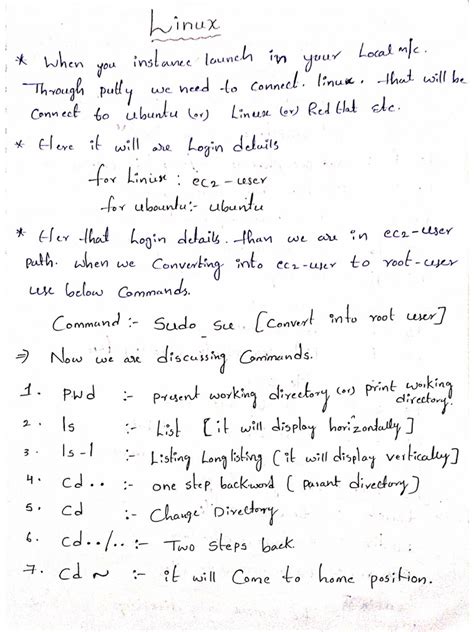 Linux
* When you instance launch in your Local m/c.
Through putty we need to connect. linux. that will be
Connect to ubuntu (or) Linux (or) Red Hat etc.
* Here it will are Login details
for Linux : ec2-user
for ubauntu:- ubuntu
* After that Login details. than we are in ec2-user
path. when we Converting into ec2-user to root-user
use below Commands.
Command :- Sudo su. [Convert into root user]
=> Now we are discussing Commands.
1. PWd :- present working directory (or) print working
directory.
2. ls :- List [it will display horizontally]
3. ls-l :- Listing Longlisting (it will display vertically]
4. Cd .. :- one step backword [parant directory)
5. Cd :- Change Directory
6. Cd../.. :- Two steps back.
7. Cd ~ :- it will Come to home position.